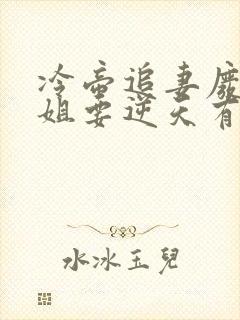 冷帝追妻廢
姐要逆天有
水冰玉兒